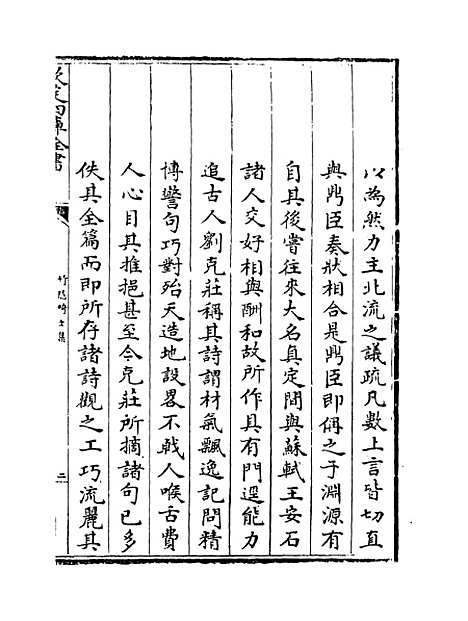 以為然力主北流之議疏凡數上言皆切直
與鼎臣奏狀相合是鼎臣即偁之子淵源有
自其後嘗往來大名真定間與蘇軾王安石
諸人交好相與酬和故所作具有門逕能力
追古人劉克莊稱其詩謂材氣飄逸記問精
博警句巧對殆天造地設畧不戟人喉舌費
人心目其推挹甚至今克莊所摘諸句已多
佚其全篇而即所存諸詩觀之工巧流麗其
欽定四庫全書
竹隠畸士集
二